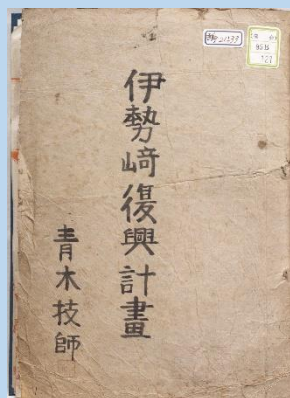 伊勢﨑復興計畫
青木技師